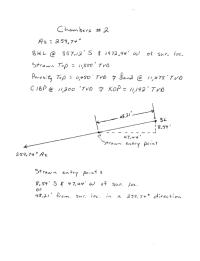 Chambers #2
Az = 259.74°
BHL @ 357.12' S & 1972.98' W of sur. loc.
Strawn Top = 11,555' TVD
Porosity Top = 11,550' TVD & Sand @ 11,575' TVD
CIBP @ 11,200' TVD & KOP = 11,192' TVD
48.21'
SL
8.59'
47.44'
Strawn entry point
259.74° Az
Strawn entry point is
8.59' S & 47.44' W of sur. loc.
or
48.21' from sur. loc. in a 259.74° direction